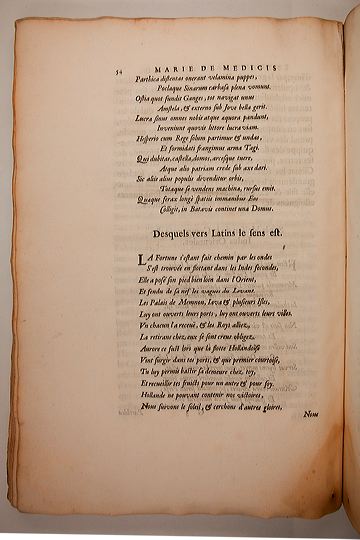 54 MARIE DE MEDICIS
Parthica distentas onerant velamina puppes,
Poclaque Sinarum carbasa plena vomunt.
Ostia quot fundit Ganges, tot navigat unus
Amstela, & externo sub Jove bella gerit.
Lucra sinus omnes nobis atque æquora pandunt,
Inveniunt quovis littore lucra viam.
Hesperio cum Rege solum partimur & undas,
Et formidati frangimus arma Tagi.
Qui dubitas, castella, domos, arcesque tuere,
Atque alio patriam crede sub axe dari.
Sic aliis alius populis devenditur orbis,
Totaque se vendens machina, rursus emit.
Quæque ferax longè spatiis immanibus Eos
Colligit, in Batavis continet una Domus.
Desquels vers Latins le sens est.
LA Fortune s'estant fait chemin par les ondes
S'est trouvée en flottant dans les Indes fecondes,
Elle a posé son pied bien loin dans l'Orient,
Et fendu de sa nef les vagues du Levant.
Les Palais de Memnon, Iava & plusieurs Isles,
Luy ont ouverts leurs ports, luy ont ouverts leurs villes.
Vn chacun l'a receuë, & les Roys alliez,
La retirans chez eux se sont creus obligez.
Aurore ce fust lors que la flotte Hollandoise
Vint surgir dans tes ports, & que premier courtoise,
Tu luy permis bastir sa demeure chez toy,
Et recueillir tes fruicts pour un autre & pour soy.
Hollande ne pouvant contenir nos victoires,
Nous suivons le soleil, & cerchons d'autres gloires,
Nous